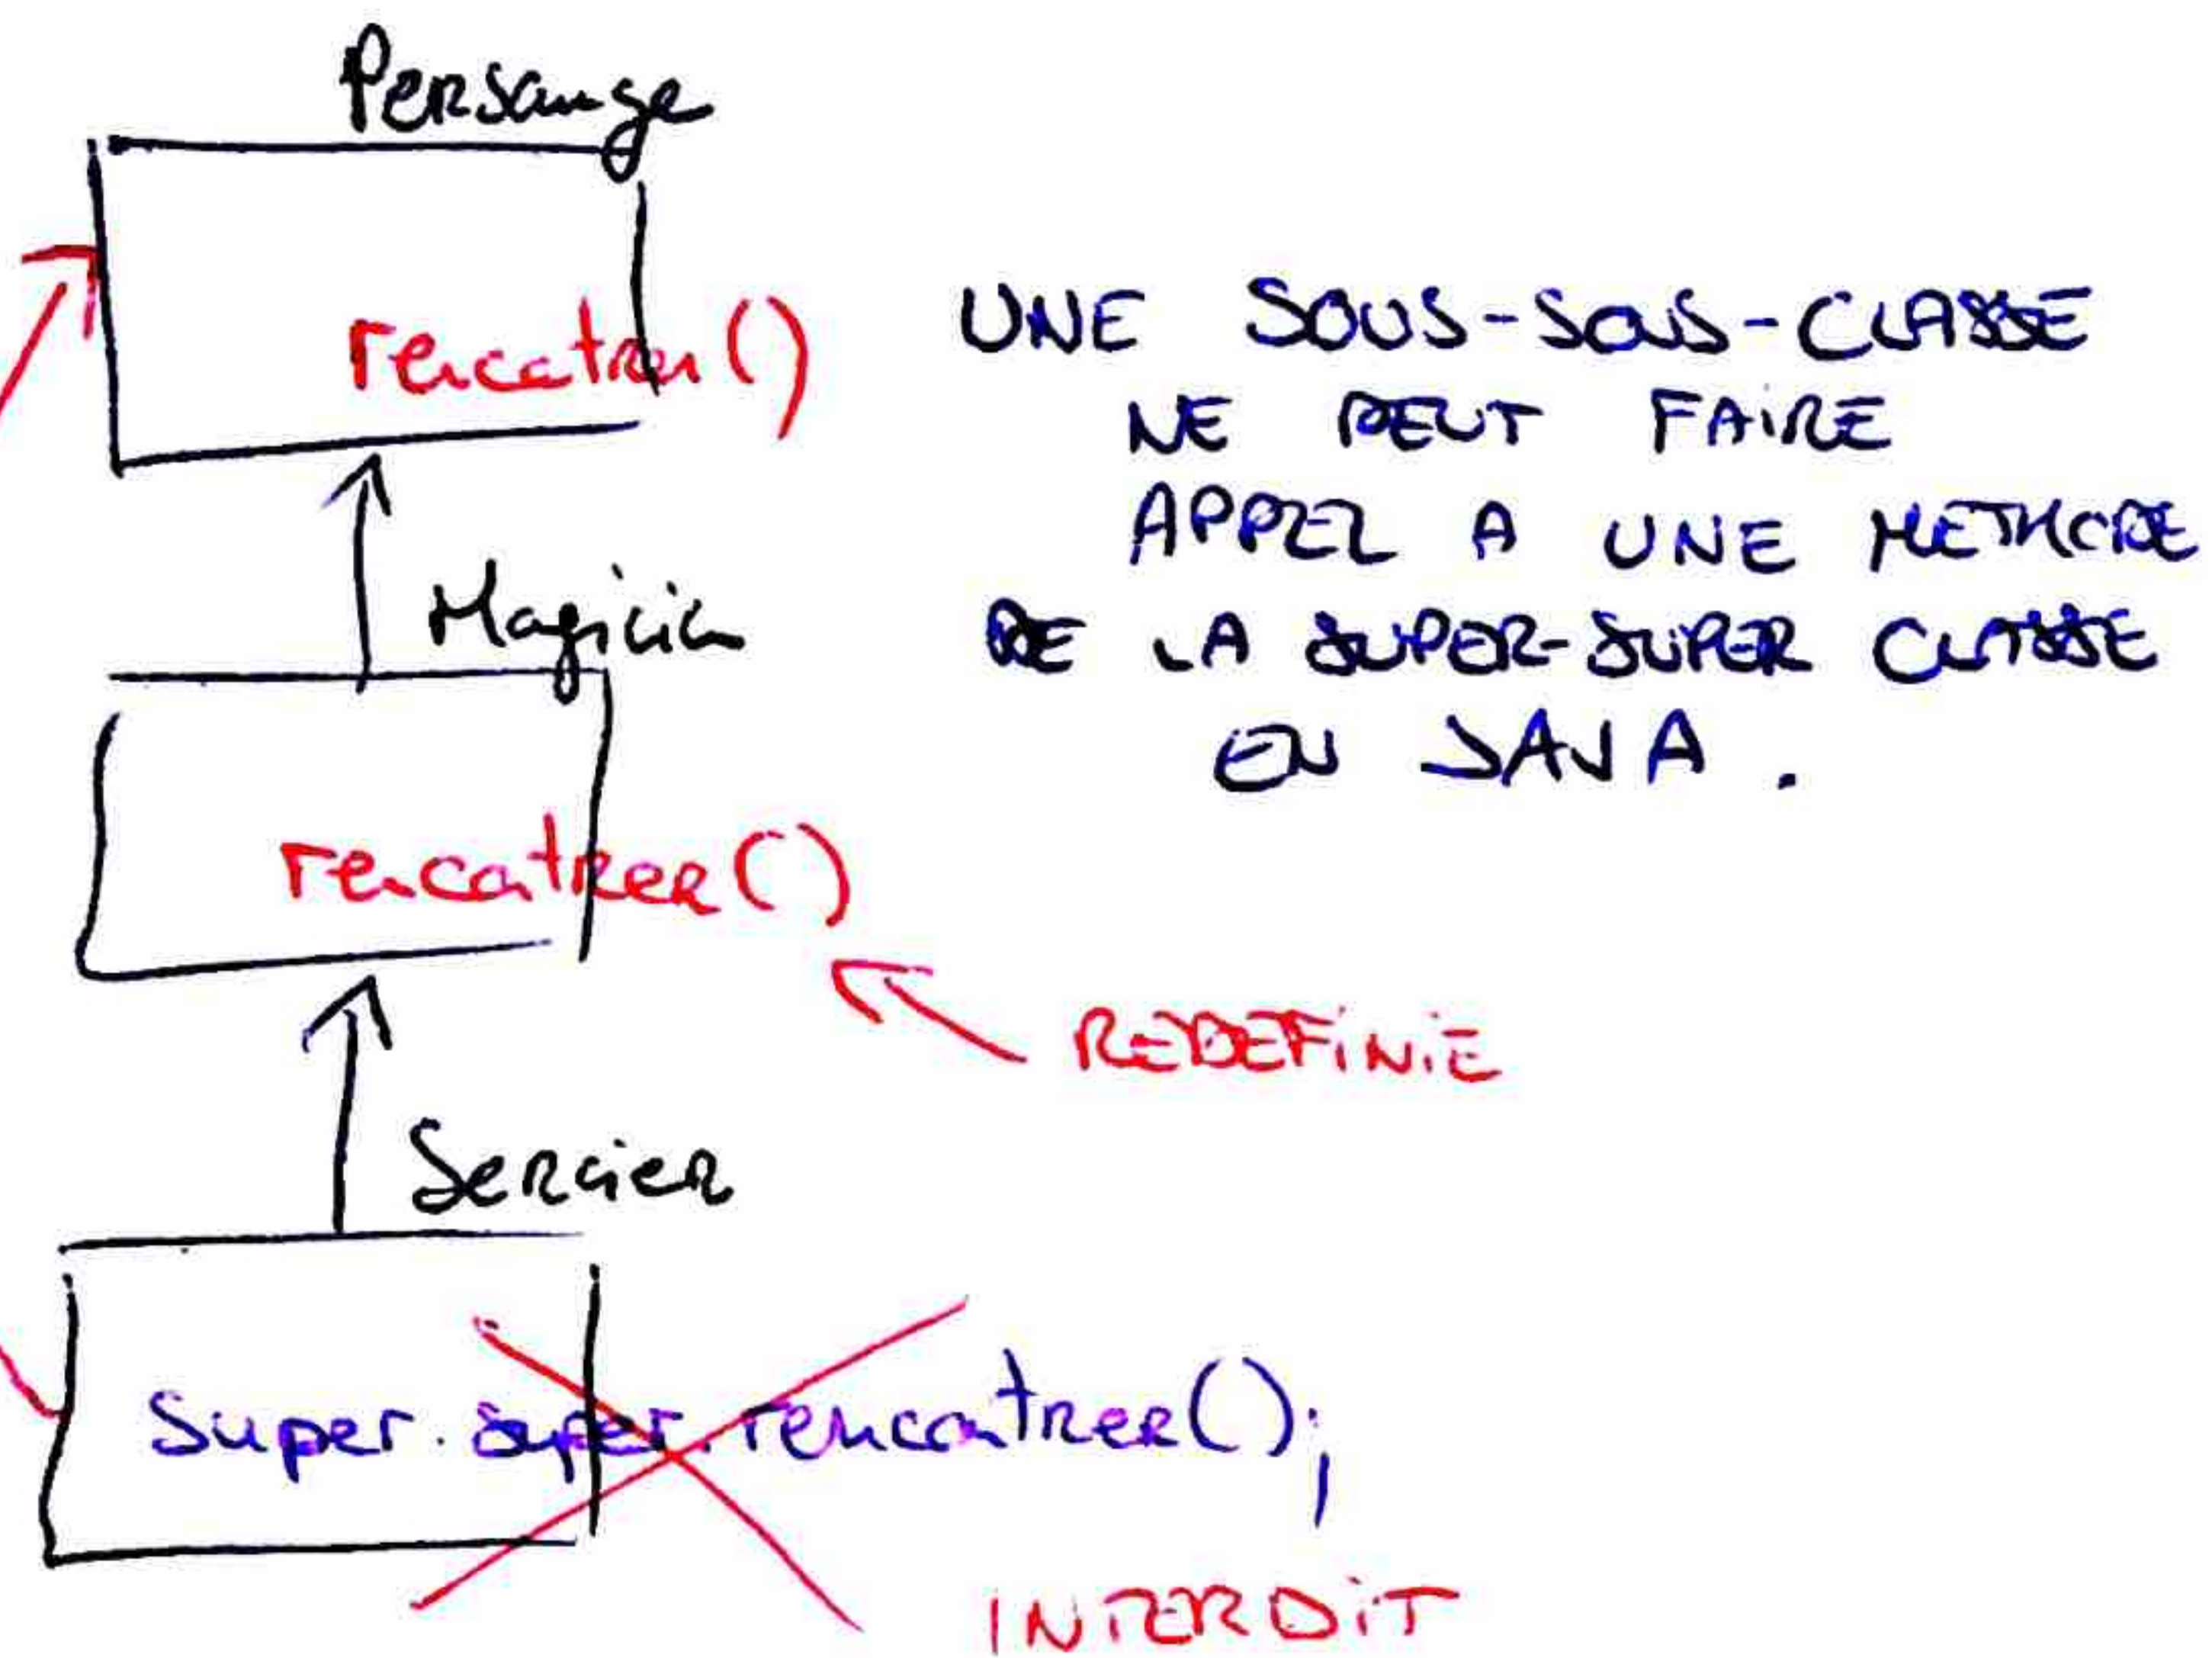 Personnage
rencontrer()
UNE SOUS-SOUS-CLASSE
NE PEUT FAIRE
APPEL A UNE METHODE
DE LA SUPER-SUPER CLASSE
EN JAVA.
Magicien
rencontrer()
REDEFINIE
Sorcier
Super.super.rencontrer();
INTERDIT